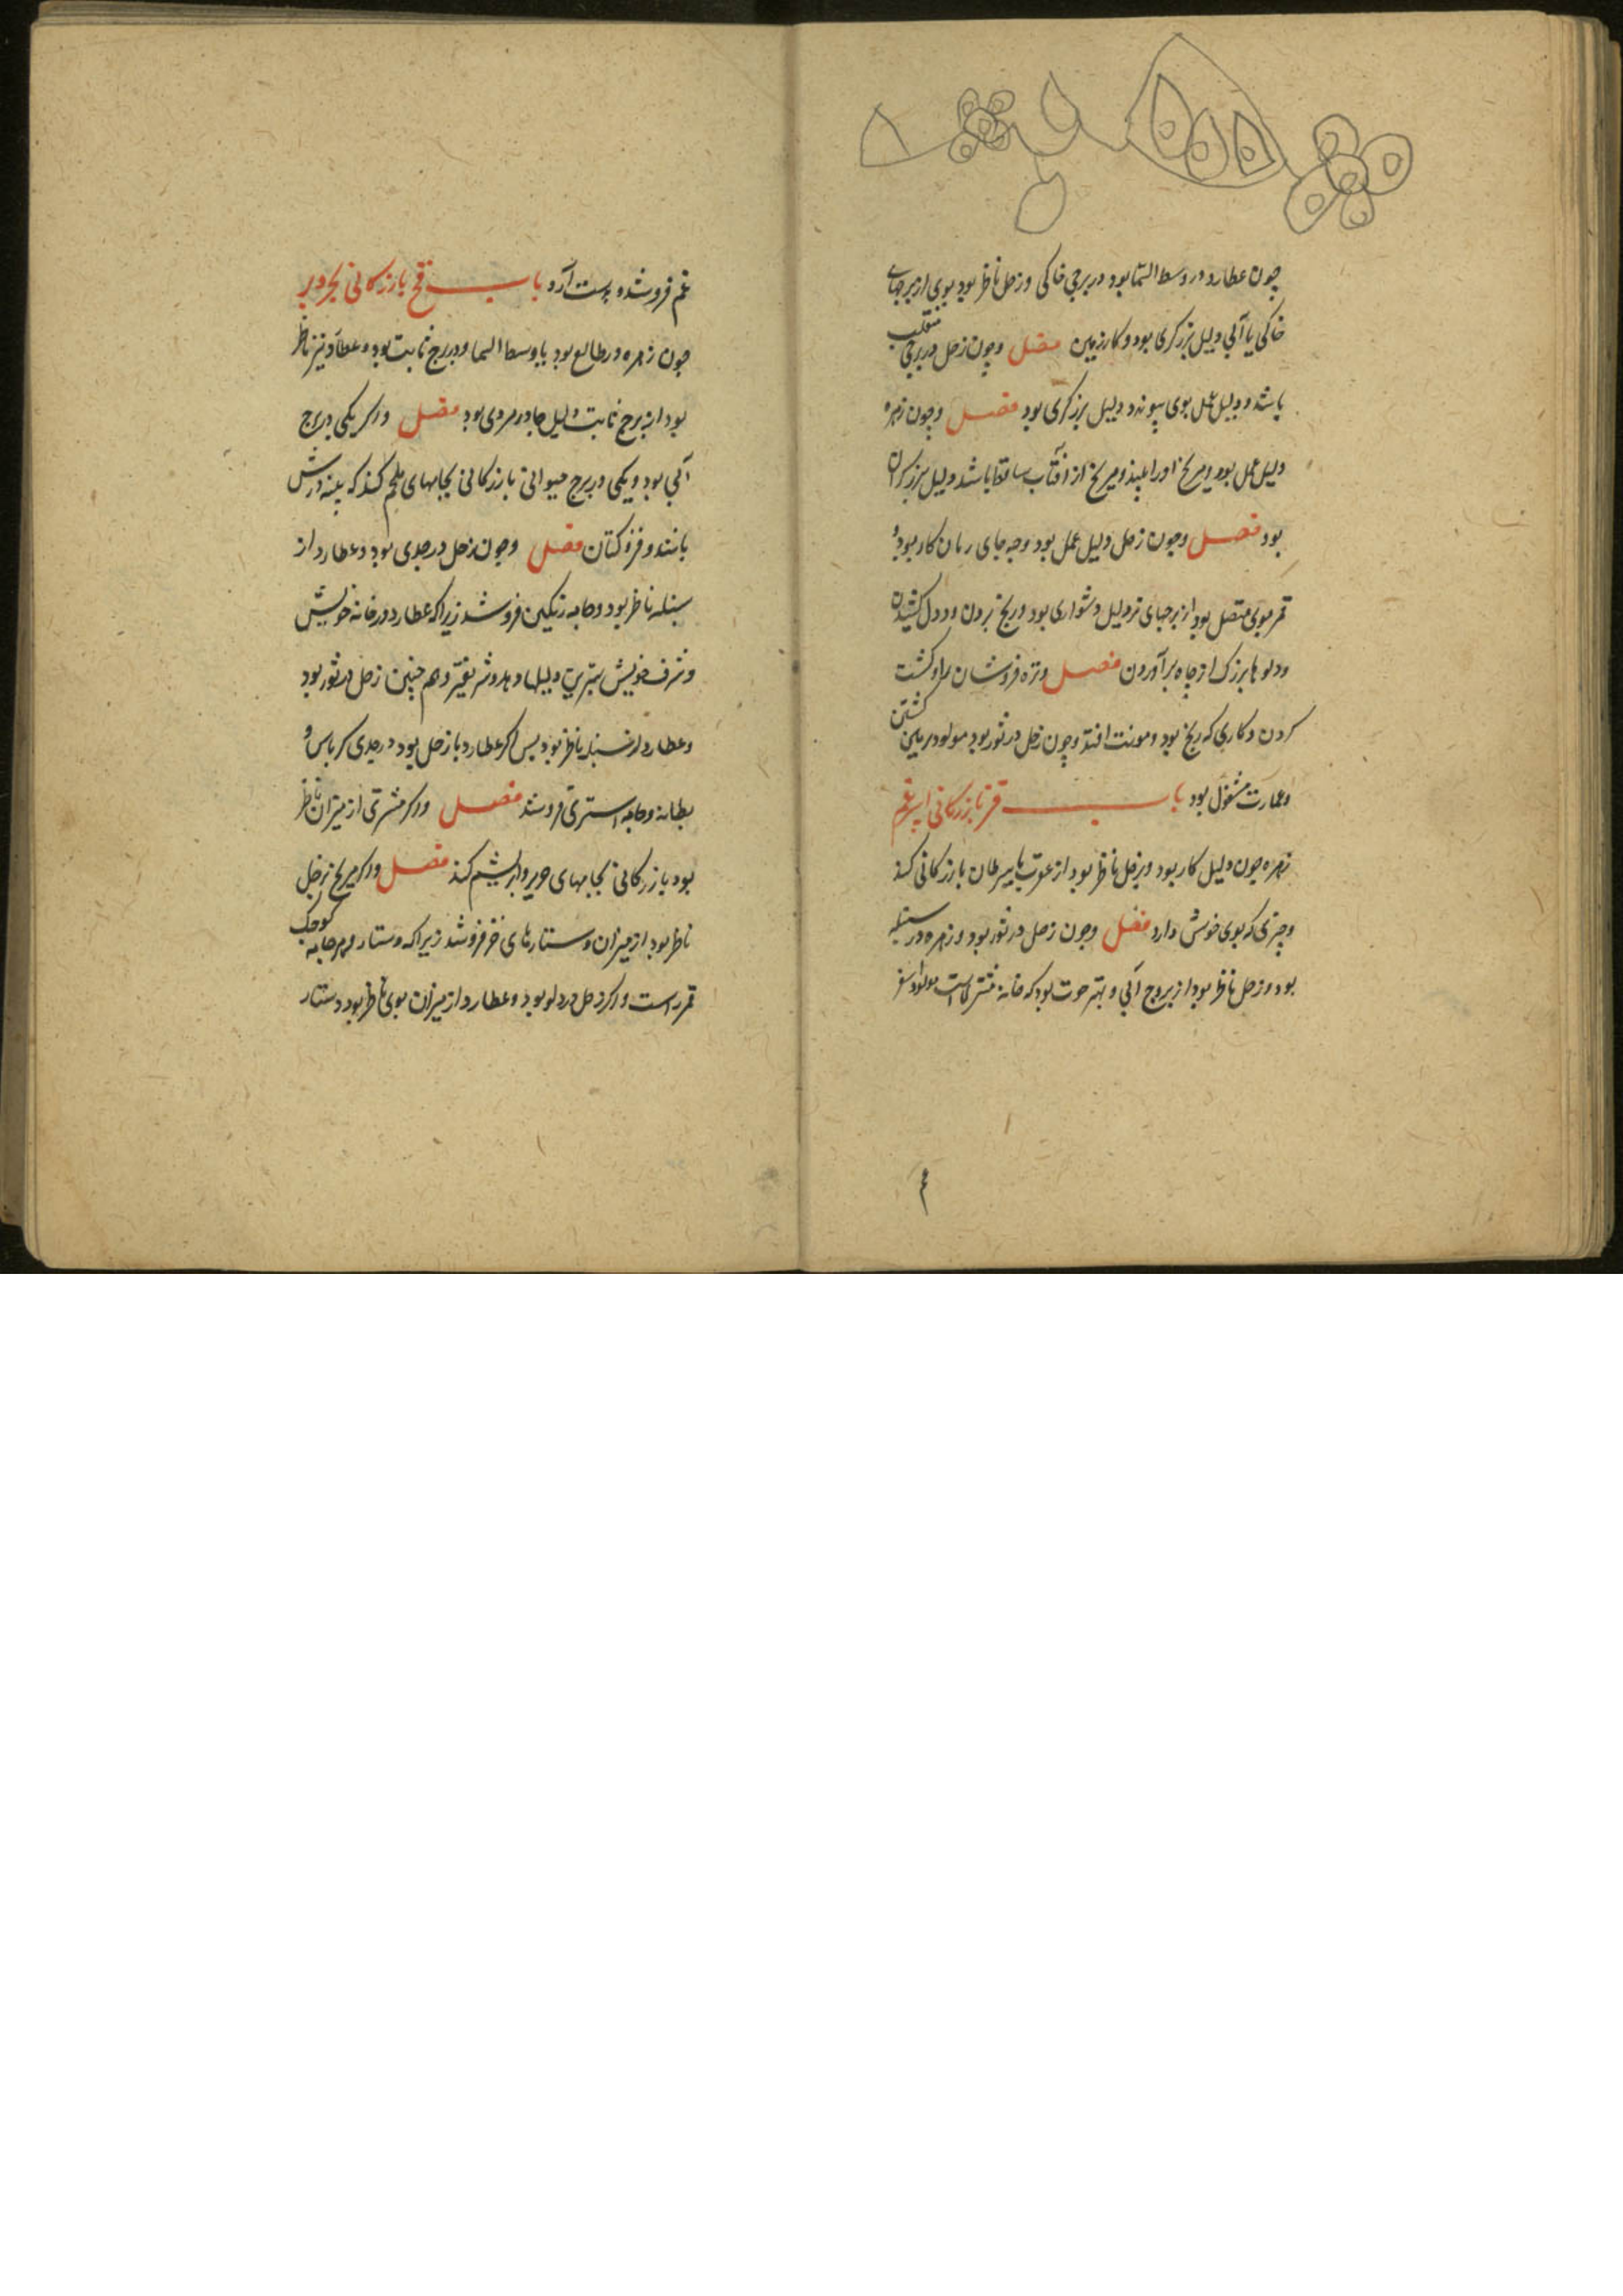 چون عطارد در وسط السما بود در برجی خاکی و زحل ناظر بود بوی از برجهای
خاکی یا آبی دلیل برزکری بود و کار زمین فصل و چون زحل در برجی منقلب
باشد و دلیل عمل بوی پیوندد دلیل برزکری بود فصل و چون زهره
دلیل عمل بود و مریخ او را بیند و مریخ از آفتاب ساقط باشد دلیل برزکران
بود فصل و چون زحل دلیل عمل بود و کار بود و
قمر بوی متصل بود از برجهای تر دلیل دشواری بود و رنج بردن و دول کشیدن
و دلوها بزرک از چاه برآوردن فصل و تره فروشان را و کشت
کردن و کاری که رنج بود و مونت افتد و چون زحل در ثور بود مولود بزمین کشتن
و عمارت مشغول بود باب بازرکانی
زهره چون دلیل کار بود و بزحل ناظر بود از عقرب یا سرطان بازرکانی کند
و چیزی که بوی خوش دارد فصل و چون زحل در ثور بود و زهره در سنبله
بود و زحل ناظر بود از بروج آبی و بهتر حوت بود که خانه مشتریست مولود
فروشد و بدست آرد باب قح بازرکانی
چون زهره در طالع بود یا وسط السما و در برج ثابت بود و عطارد نیز ناظر
بود از برج ثابت دلیل بود فصل و اکر یکی در برج
آبی بود و یکی در برج حیوانی بازرکانی بجامهای ملحم کند که پنبه درش
باشد و قز و کتان فصل و چون زحل در جدی بود و عطارد از
سنبله ناظر بود و جامه رنکین فروشد زیرا که عطارد در خانه خویش
و شرف خویش دلیلها دهد و همچنین زحل در ثور بود
و عطارد از سنبله ناظر بود پس اکر عطارد با زحل بود در جدی کرباس و
بطانه و جامه استری فروشد فصل و اکر مشتری از میزان ناظر
بود بازرکانی بجامهای حریر و ابریشم کند فصل و اکر مریخ بزحل
ناظر بود از میزان دستارهای خز فروشد زیرا که دستار و هر جامه کوچک
قمر راست و اکر زحل در دلو بود و عطارد از میزان بوی ناظر بود دستار